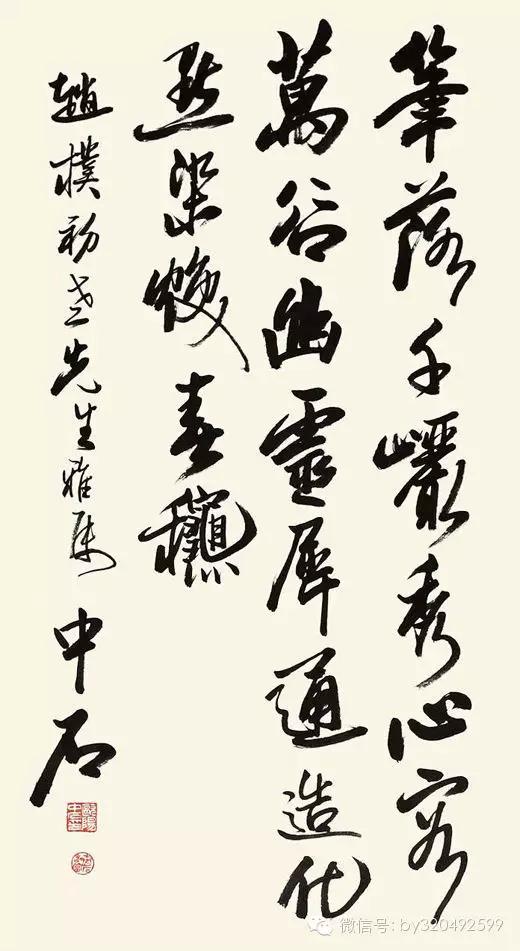 筆落千巖秀心容
萬谷幽靈犀通造化
點染煥春龝
趙樸初老先生雅屬
中石
微信号: by320492599